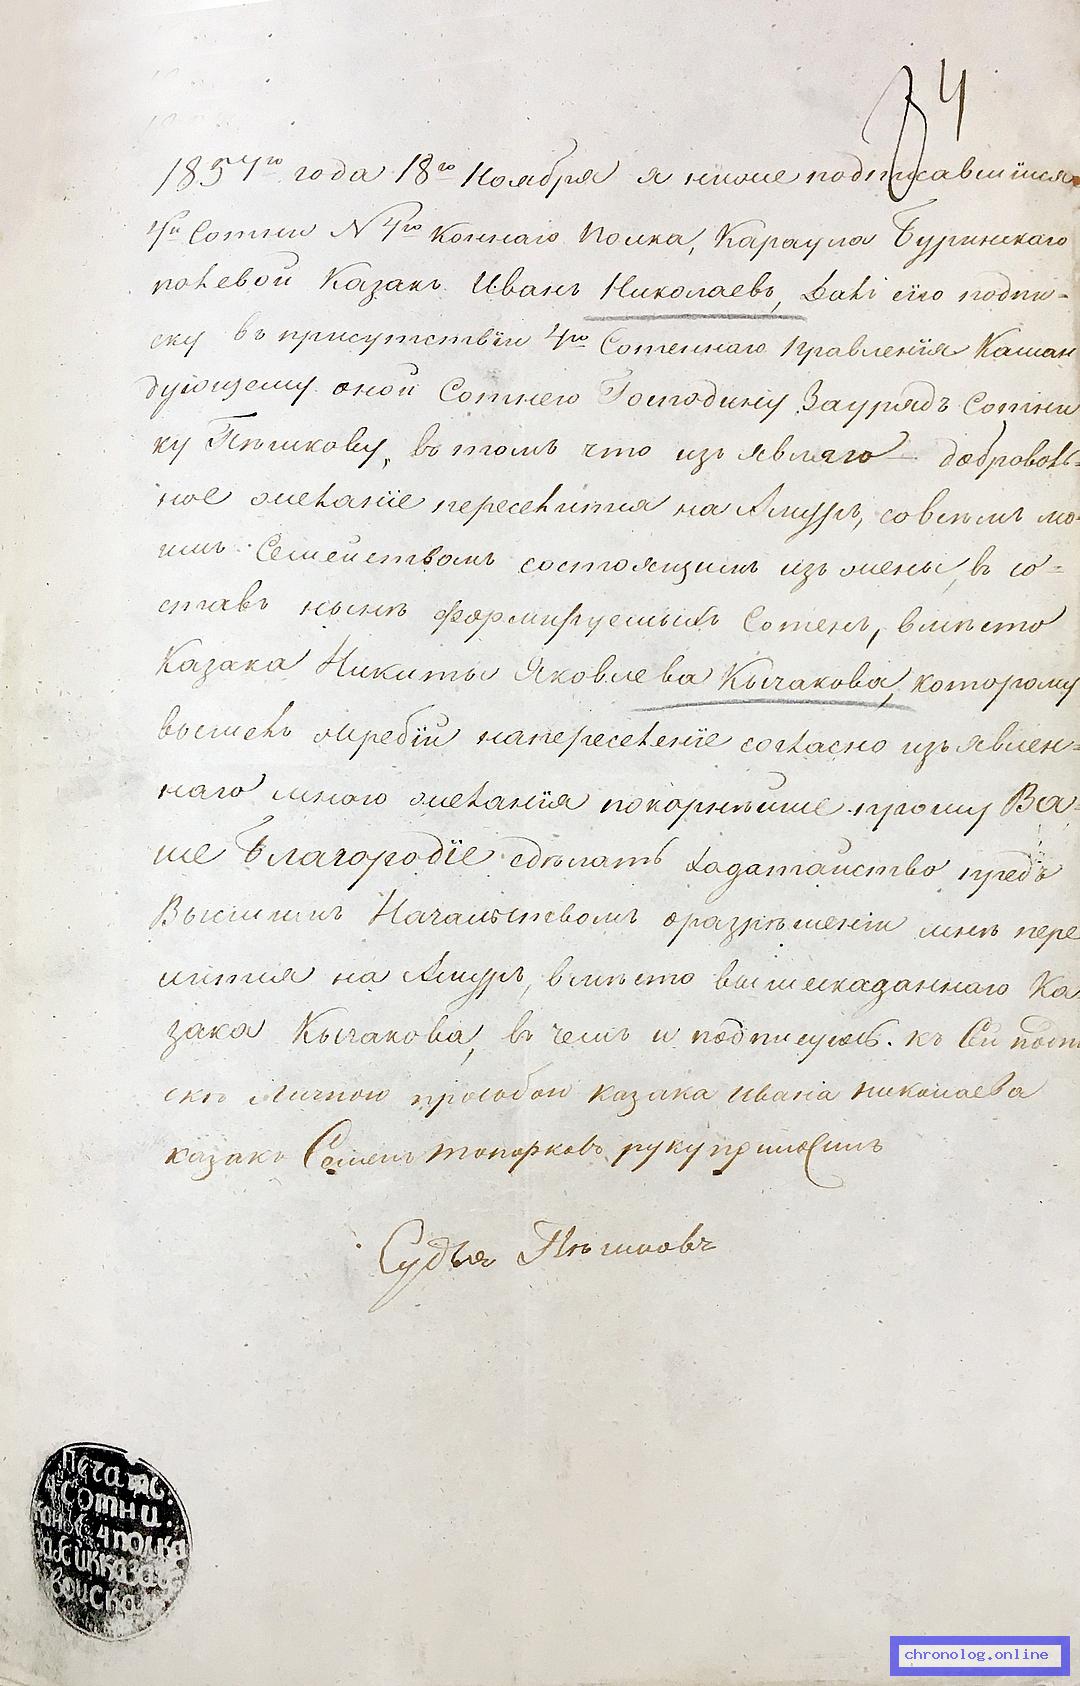 34
1857го года 18го Ноября я ниже подписавшийся
4й Сотни N 4го Коннаго Полка, Караула Буринскаго
полевой Казакъ Иванъ Николаевъ, далъ сію подпи-
ску въ присутствіи 4го Сотеннаго Правленія Каман
дующему оной Сотнею Господину Заурядъ Сотни
ку Пѣшкову, въ томъ что изъявляю доброволь-
ное желаніе переселится на Амуръ, совсѣмъ мо-
имъ Семействомъ состоящимъ изъ жены, въ со-
ставъ нынѣ формируемыхъ Сотенъ, вмѣсто
Казака Никиты Яковлева Кычакова, которому
вышелъ жребій напереселеніе согласно изъявлен-
наго мною желанія покорнѣйше прошу Ва-
ше Благородіе сдѣлать ходатайство предъ
Высшимъ Начальствомъ оразрѣшеніи мнѣ пере
литися на Амуръ, вмѣсто вышескаданнаго Ка
зака Кычакова, въ чемъ и подписуюсь. къ Си подпи
скѣ Личною прозбою казака ивана николаева
казакъ Семенъ топорковъ руку приложилъ
Судья Пѣшковъ
Печать.
4 Сотни.
Кон 4 полка
Заб
войска
chronolog.online